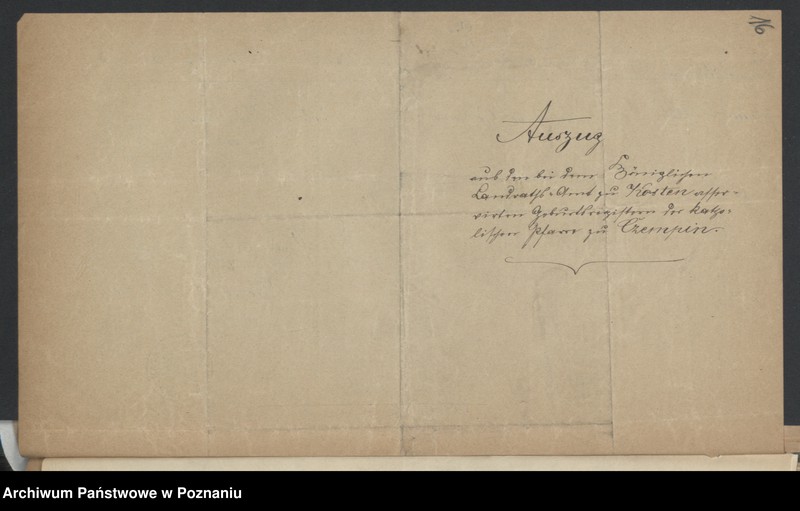 16
Auszug
aus den bei dem Königlichen
Landraths-Amt zu Kosten asser-
virten Geburtsregistern der katho-
lischen Pfarre zu Czempin.
Archiwum Państwowe w Poznaniu